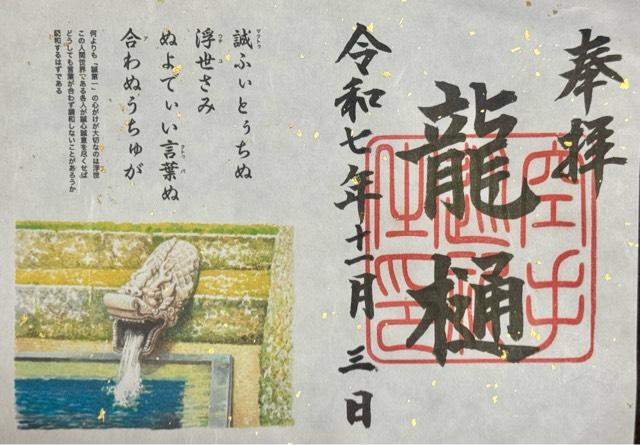 奉拝
龍樋
令和七年十一月三日
誠ふぃとぅちぬ
マクトゥ
浮世さみ
ぬよてぃい言葉ぬ
クトゥバ
合わぬうちゅが
ア
何よりも『誠第一』の心がけが大切なのは浮世
この人間世界である各人が誠心誠意を尽くせば
どうしても言葉が合わず調和しないことがあろうか
和するはずである
空手